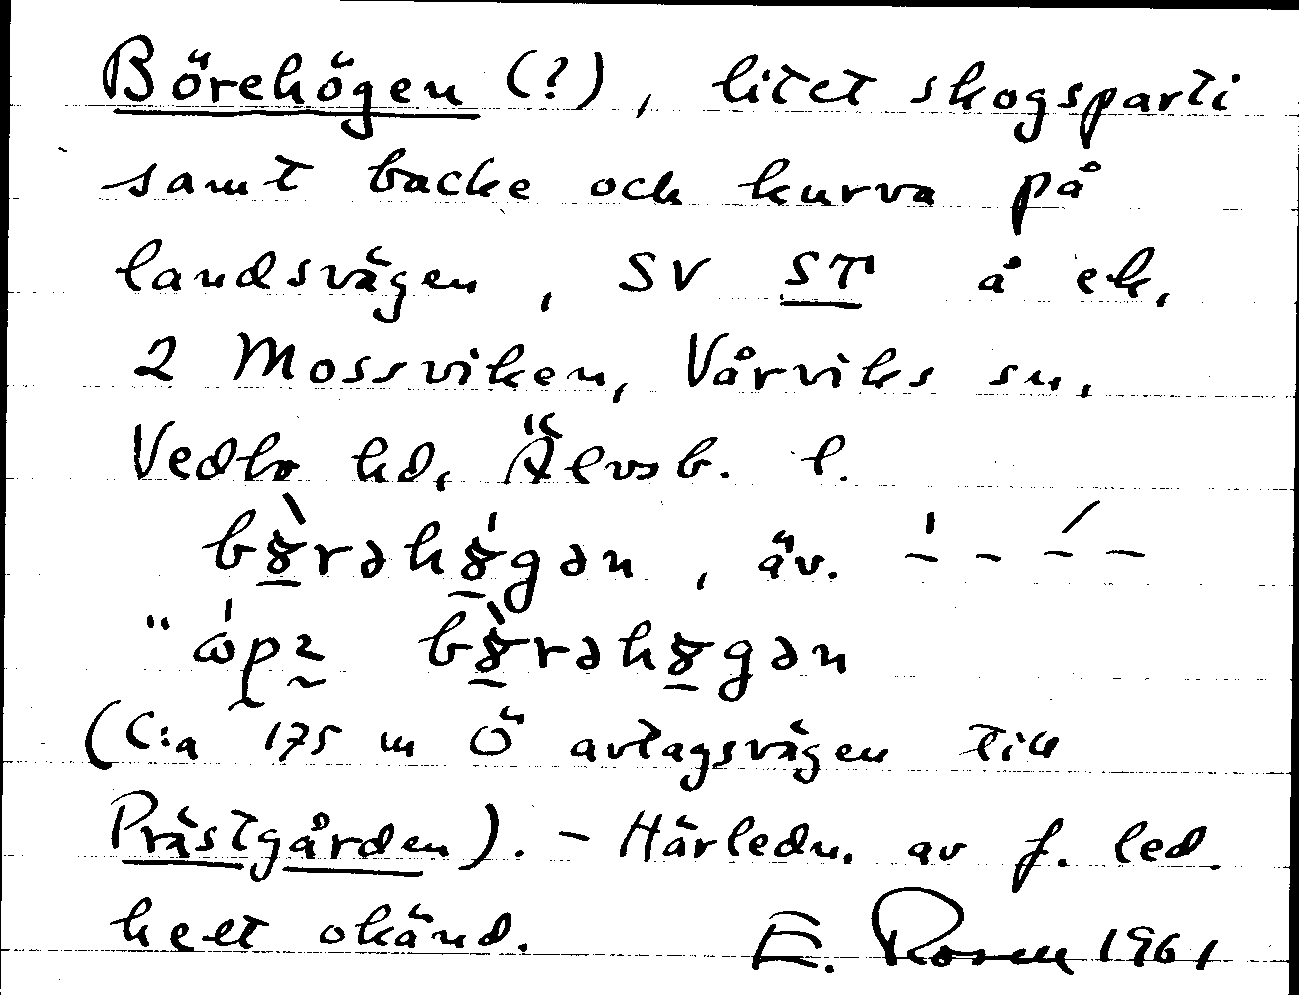 Börehögen (?), litet skogsparti
samt backe och kurva på
landsvägen, SV ST å ek.
2 Mossviken, Vårviks sn.
Vedbo hd, Älvsb. l.
, äv.
(C:a 175 m Ö avtagsvägen till
Prästgården). - Härledn. av f. led
helt okänd. E. Rosen 1961